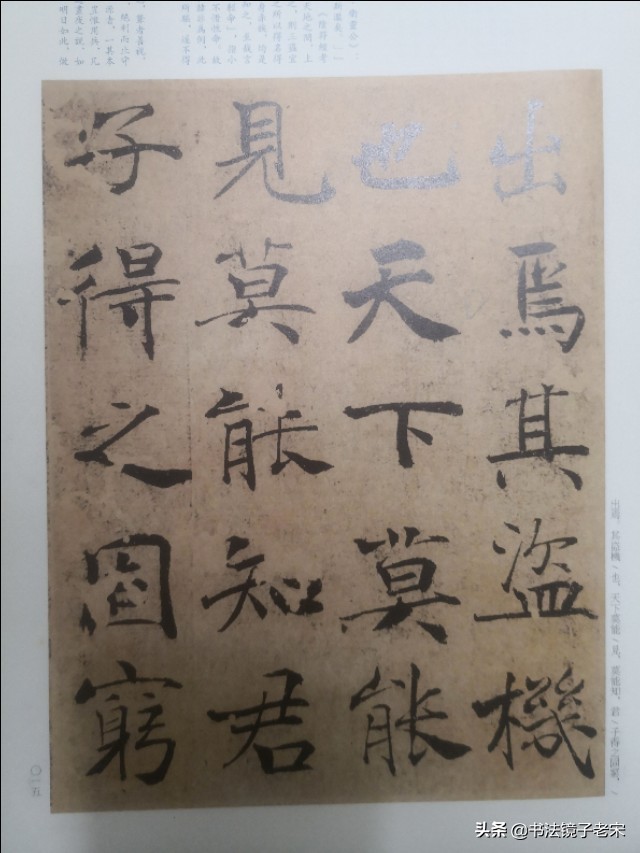 出焉其盗機
也天下莫能
見莫能知君
子得之固窮
出焉。其盗機/也,天下莫能/見,莫能知。君/子得之固窮,/
〇一五
头条 @书法镜子老宋